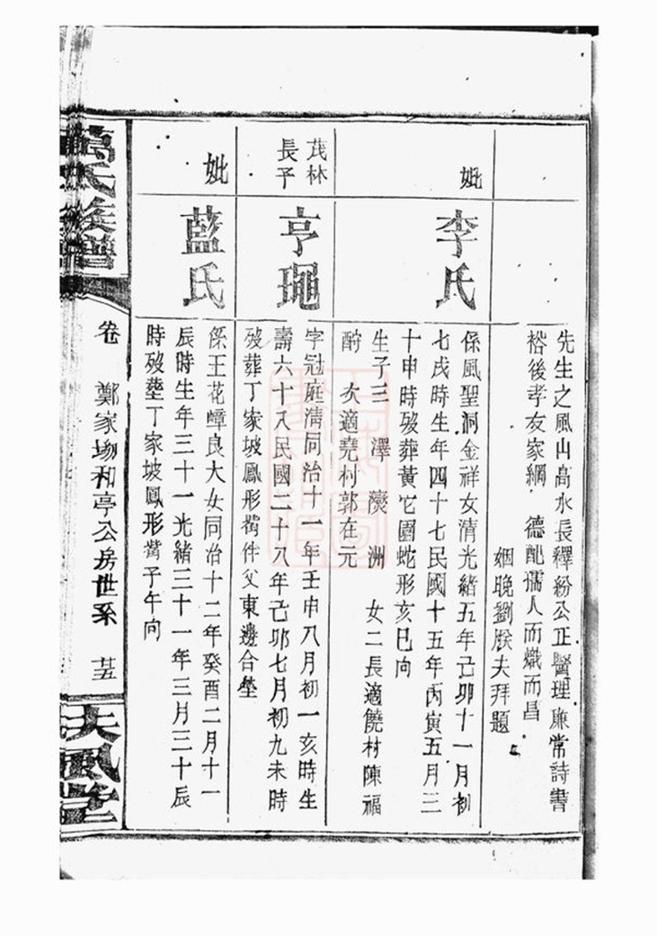 先生之風山高水長釋紛公正醫理廉常詩書
裕後孝友家綱 德配孺人而熾而昌
姻晚劉朕夫拜題
妣
李氏
係風聖洞金祥女清光緒五年己卯十一月初
七戌時生年四十七民國十五年丙寅五月三
十申時歿葬黃它園蛇形亥巳向
生子三 澤 瀠 洲 女二長適饒村陳福
酧 次適堯村郭在元
茂林
長子
亨
字冠庭清同治十一年壬申八月初一亥時生
壽六十八民國二十八年己卯七月初九未時
歿葬丁家坡鳳形嘴伴父東邊合塋
妣
藍氏
係王花嶂良大女同治十二年癸酉二月十一
辰時生年三十一光緒三十一年三月三十辰
時歿塟丁家坡鳳形嘴子午向
萬氏族譜
卷 鄭家坳和亭公房世系 廿五
扶風堂